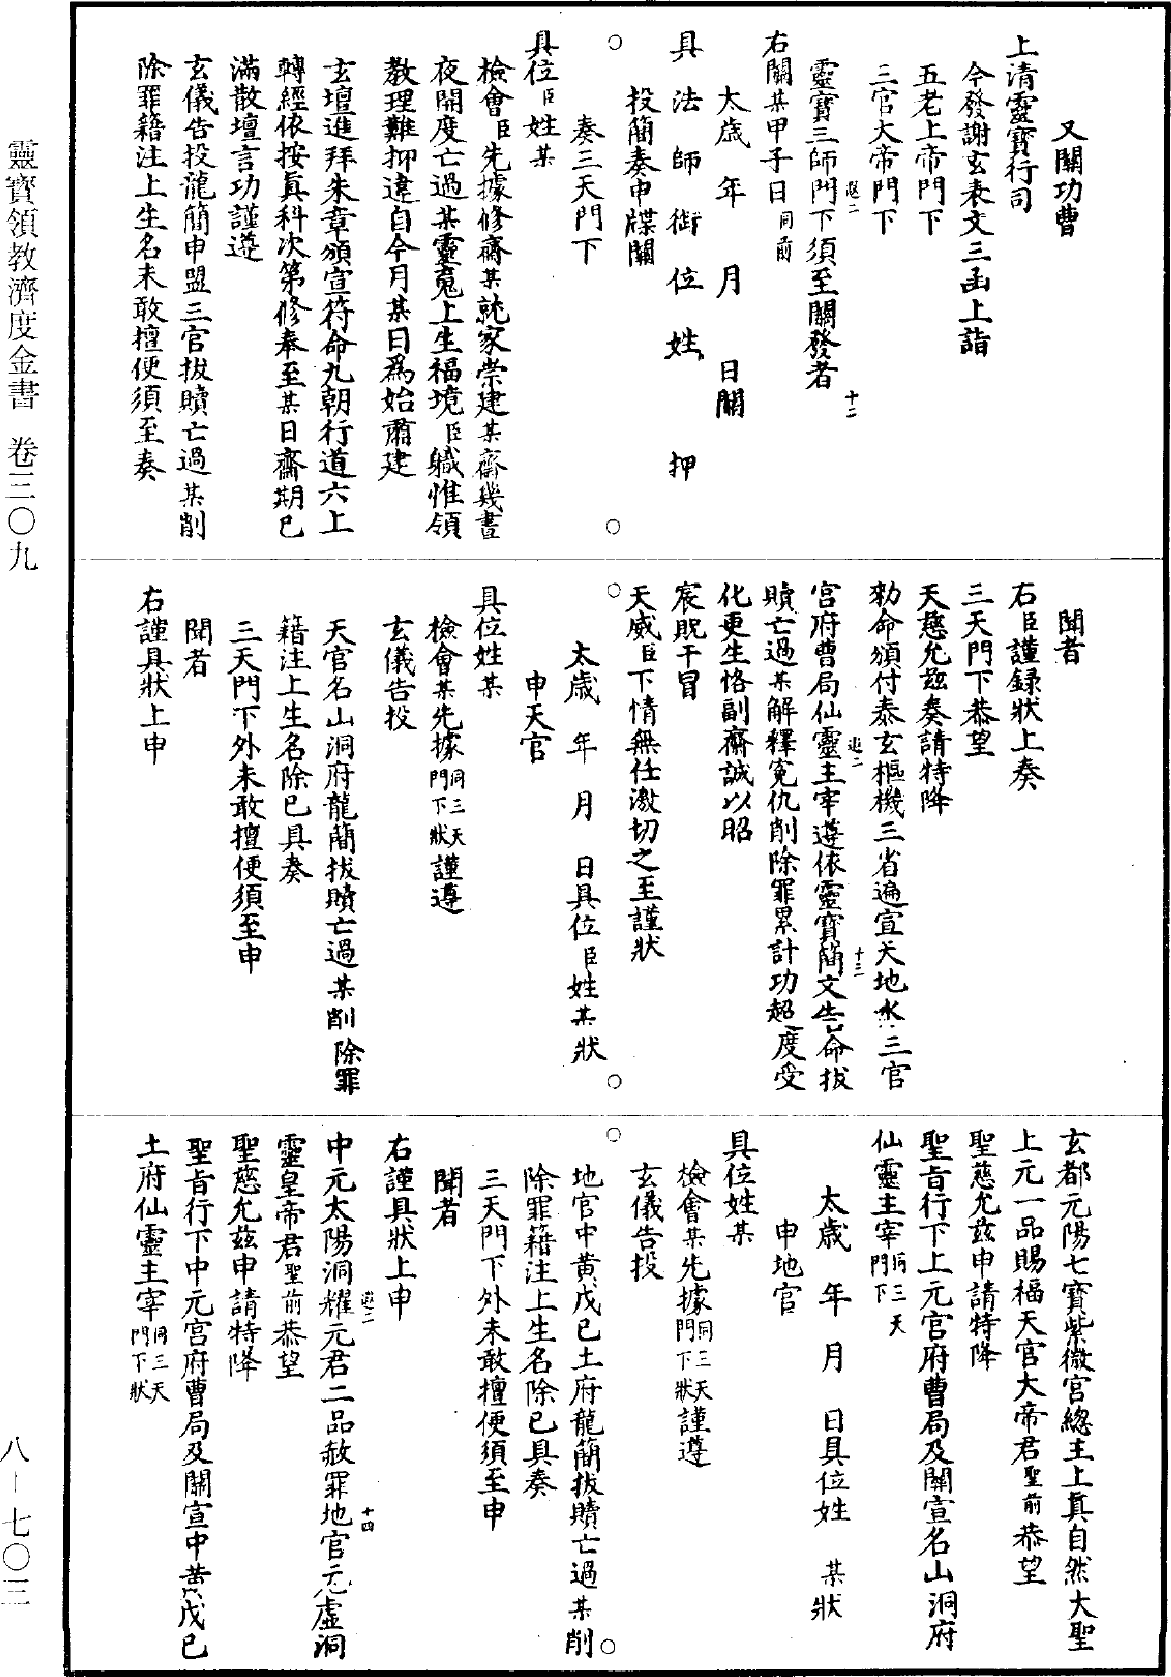 又關功曹
上清靈寶行司
今發謝玄表文三函上詣
五老上帝門下
三官大帝門下
靈寶三師門下須至關發者
右關某甲子日同前
太歲 年 月 日關
具法師銜位姓 押
投簡奏申牒關
奏三天門下
具位臣姓某
檢會臣先據修齋某就家崇建某齋幾晝
夜開度亡過某靈䰟上生福境臣職惟領
教理難抑違自今月某日爲始肅建
玄壇進拜朱章頒宣符命九朝行道六上
轉經依按眞科次第修奉至某日齋期已
滿散壇言功謹遵
玄儀告投龍簡申盟三官拔贖亡過某削
除罪籍注上生名未敢擅便須至奏
聞者
右臣謹録狀上奏
三天門下恭望
天慈允兹奏請特降
勑命頒付泰玄樞機三省遍宣天地水三官
宮府曹局仙靈主宰遵依靈寶簡文告命拔
贖亡過某解釋寃仇削除罪累計功超度受
化更生恪副齋誠以昭
宸貺干冒
天威臣下情無任激切之至謹狀
太歲 年 月 日具位臣姓某狀
申天官
具位姓某
檢會某先據同三天門下狀謹遵
玄儀告投
天官名山洞府龍簡拔贖亡過某削除罪
籍注上生名除已具奏
三天門下外未敢擅便須至申
聞者
右謹具狀上申
玄都元陽七寶紫微宮總主上眞自然大聖
上元一品賜福天官大帝君聖前恭望
聖慈允兹申請特降
聖旨行下上元官府曹局及關宣名山洞府
仙靈主宰同三天門下
太歲 年 月 日具位姓 某狀
申地官
具位姓某
檢會某先據同三天門下狀謹遵
玄儀告投
地官中黄戊己土府龍簡拔贖亡過某削
除罪籍注上生名除已具奏
三天門下外未敢擅便須至申
聞者
右謹具狀上申
中元太陽洞耀元君二品赦罪地官元虛洞
靈皇帝君聖前恭望
聖慈允兹申請特降
聖旨行下中元宮府曹局及關宣中黄戊己
土府仙靈主宰同三天門下狀
十二
十三
十四
靈寶領教濟度金書 卷三〇九
八—七〇三